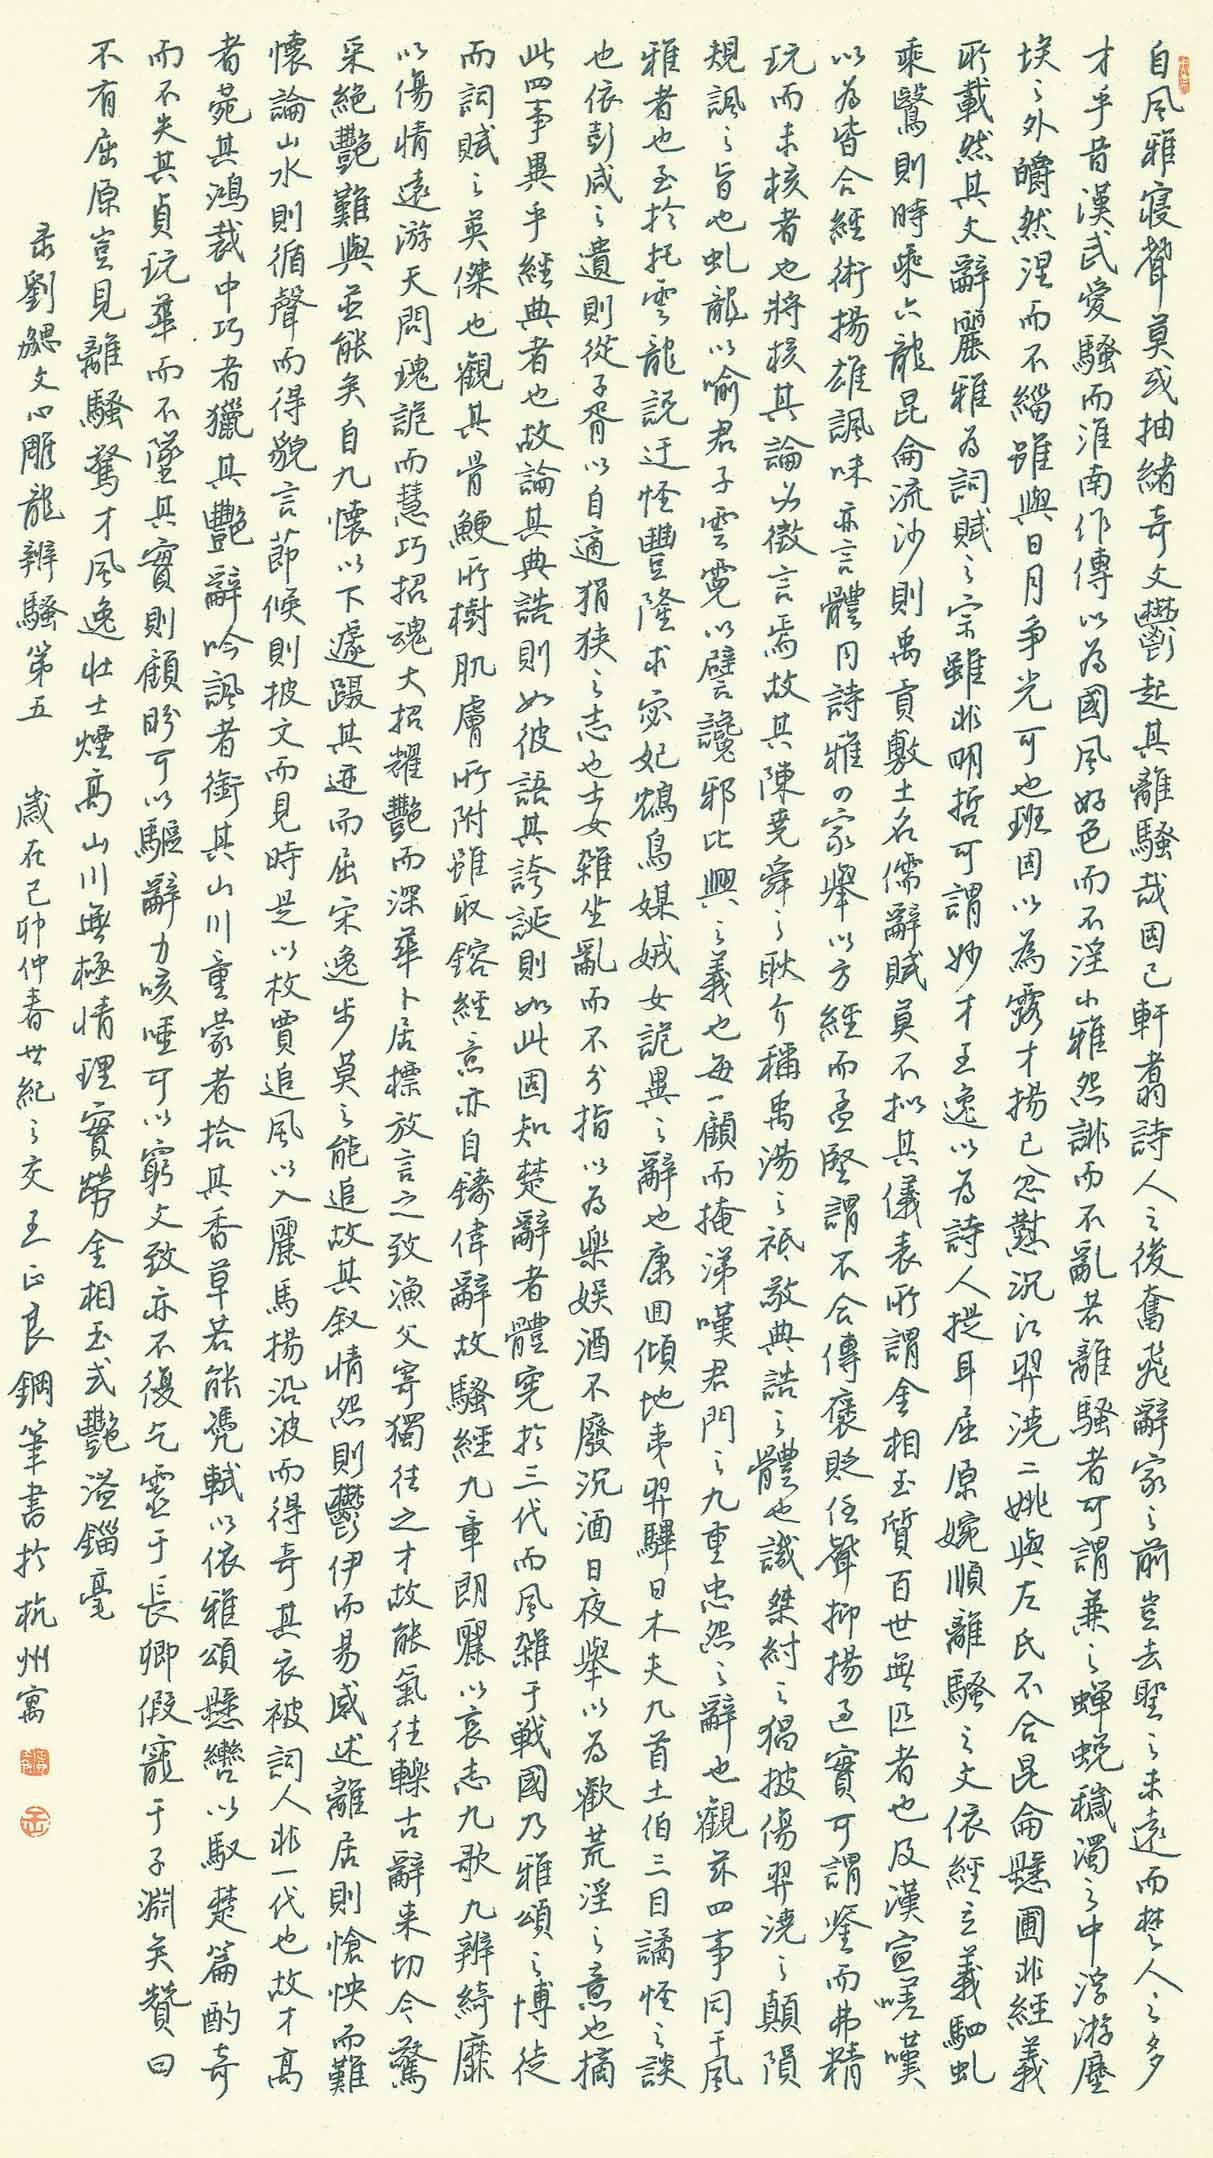 自風雅寢聲莫或抽緒奇文鬱起其離騷哉固已軒翥詩人之後奮飛辭家之前豈去聖之未遠而楚人之多
才乎昔漢武愛騷而淮南作傳以為國風好色而不淫小雅怨誹而不亂若離騷者可謂兼之蟬蛻穢濁之中浮游塵
埃之外皭然涅而不緇雖與日月爭光可也班固以為露才揚己忿懟沉江羿澆二姚與左氏不合昆侖懸圃非經義
所載然其文辭麗雅為詞賦之宗雖非明哲可謂妙才王逸以為詩人提耳屈原婉順離騷之文依經立義駟虬
乘鷖則時乘六龍昆侖流沙則禹貢敷土名儒辭賦莫不擬其儀表所謂金相玉質百世無匹者也及漢宣嗟嘆
以為皆合經術揚雄諷味亦言體同詩雅四家舉以方經而孟堅謂不合傳褒貶任聲抑揚過實可謂鑒而弗精
玩而未核者也將核其論必徵言焉故其陳堯舜之耿介稱禹湯之祗敬典誥之體也譏桀紂之猖披傷羿澆之顛隕
規諷之旨也虬龍以喻君子雲霓以譬讒邪比興之義也每一顧而掩涕嘆君門之九重忠怨之辭也觀茲四事同于風
雅者也至於托雲龍說迂怪豐隆求宓妃鴆鳥媒娀女詭異之辭也康回傾地夷羿彃日木夫九首土伯三目譎怪之談
也依彭咸之遺則從子胥以自適狷狹之志也士女雜坐亂而不分指以為樂娛酒不廢沉湎日夜舉以為歡荒淫之意也摘
此四事異乎經典者也故論其典誥則如彼語其誇誕則如此固知楚辭者體憲於三代而風雜于戰國乃雅頌之博徒
而詞賦之英傑也觀其骨鯁所樹肌膚所附雖取鎔經意亦自鑄偉辭故騷經九章朗麗以哀志九歌九辨綺靡
以傷情遠游天問瑰詭而慧巧招魂大招耀艷而深華卜居標放言之致漁父寄獨往之才故能氣往轢古辭來切今驚
采絕艷難與並能矣自九懷以下遽躡其迹而屈宋逸步莫之能追故其敘情怨則鬱伊而易感述離居則愴怏而難
懷論山水則循聲而得貌言節候則披文而見時是以枚賈追風以入麗馬揚沿波而得奇其衣被詞人非一代也故才高
者菀其鴻裁中巧者獵其艷辭吟諷者銜其山川童蒙者拾其香草若能憑軾以依雅頌懸轡以馭楚篇酌奇
而不失其貞玩華而不墜其實則顧盼可以驅辭力咳唾可以窮文致亦不復乞靈于長卿假寵于子淵矣贊曰
不有屈原豈見離騷驚才風逸壯士煙高山川無極情理實勞金相玉式艷溢錙毫
录劉勰文心雕龍辨騷第五 歲在己卯仲春世紀之交王正良鋼筆書於杭州寓